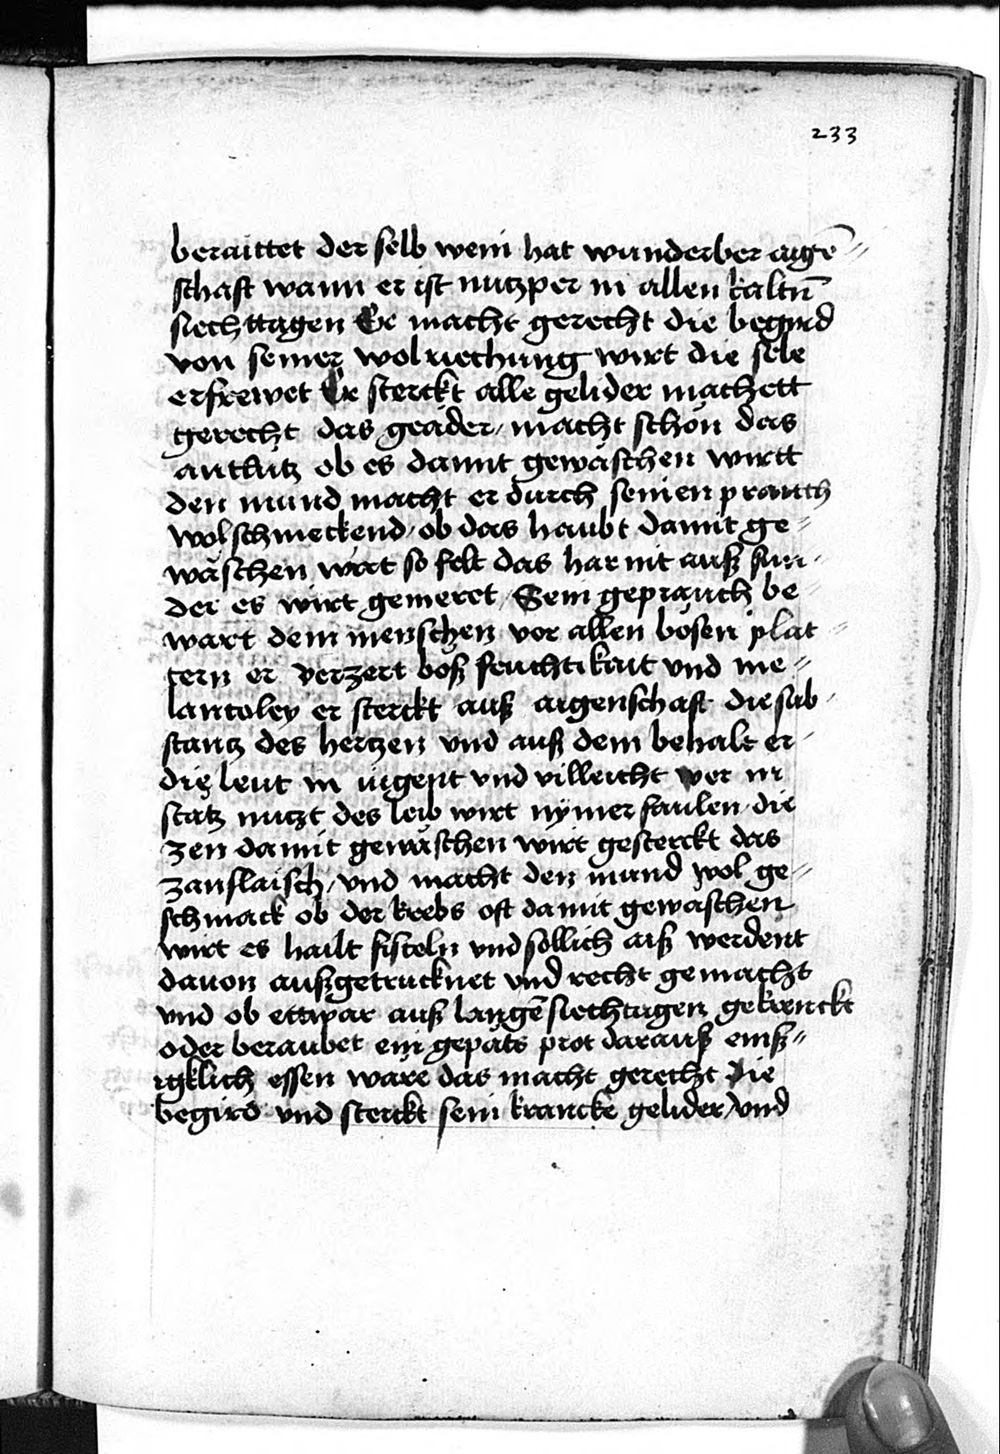 233
beraittet der selb wein hat wunderber aigē
schaft wann er ist nutzper in allen kaltn̄
siechttagen Er macht gerecht die begird
von seiner wolriechung wirt die sele
erfrewet Er sterckt alle gelider machett
gerecht das geäder / macht schön das
antlütz ob es damit gewäschen wirtt
den mund macht er durch seinen prauch
wolschmeckend / ob das haubt damit ge-
wäschen wirt so felt das har nit auß sun-
der es wirt gemeret / Sein geprauch be
wart dem menschen vor allen bösen plat
tern er verzert böß feuchtikait vnd me-
lancoley er sterckt auß aigenschaft die sub-
stantz des hertzen vnd auß dem behalt er
die leut in iugent vnd villeicht wer in
stätz nutzt des leib wirt nymer faulen die
zen damit gewäschen wirt gesterckt das
zanflaisch / vnd macht den mund wol ge-
schmack ob der krebs oft damit gewäschen
wirt es hailt fisteln vnd söllich aiß werdent
dauon außgetrucknet vnd recht gemacht
vnd ob ettwar auß langē siechtagen gekrenckt
oder beraubet ein gepäts prot darauß emß-
igklich essen wäre das macht gerecht die
begird vnd sterckt sein krancke gelider / vnd